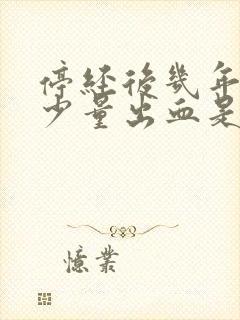 停经後幾年
少量出血是
憶業